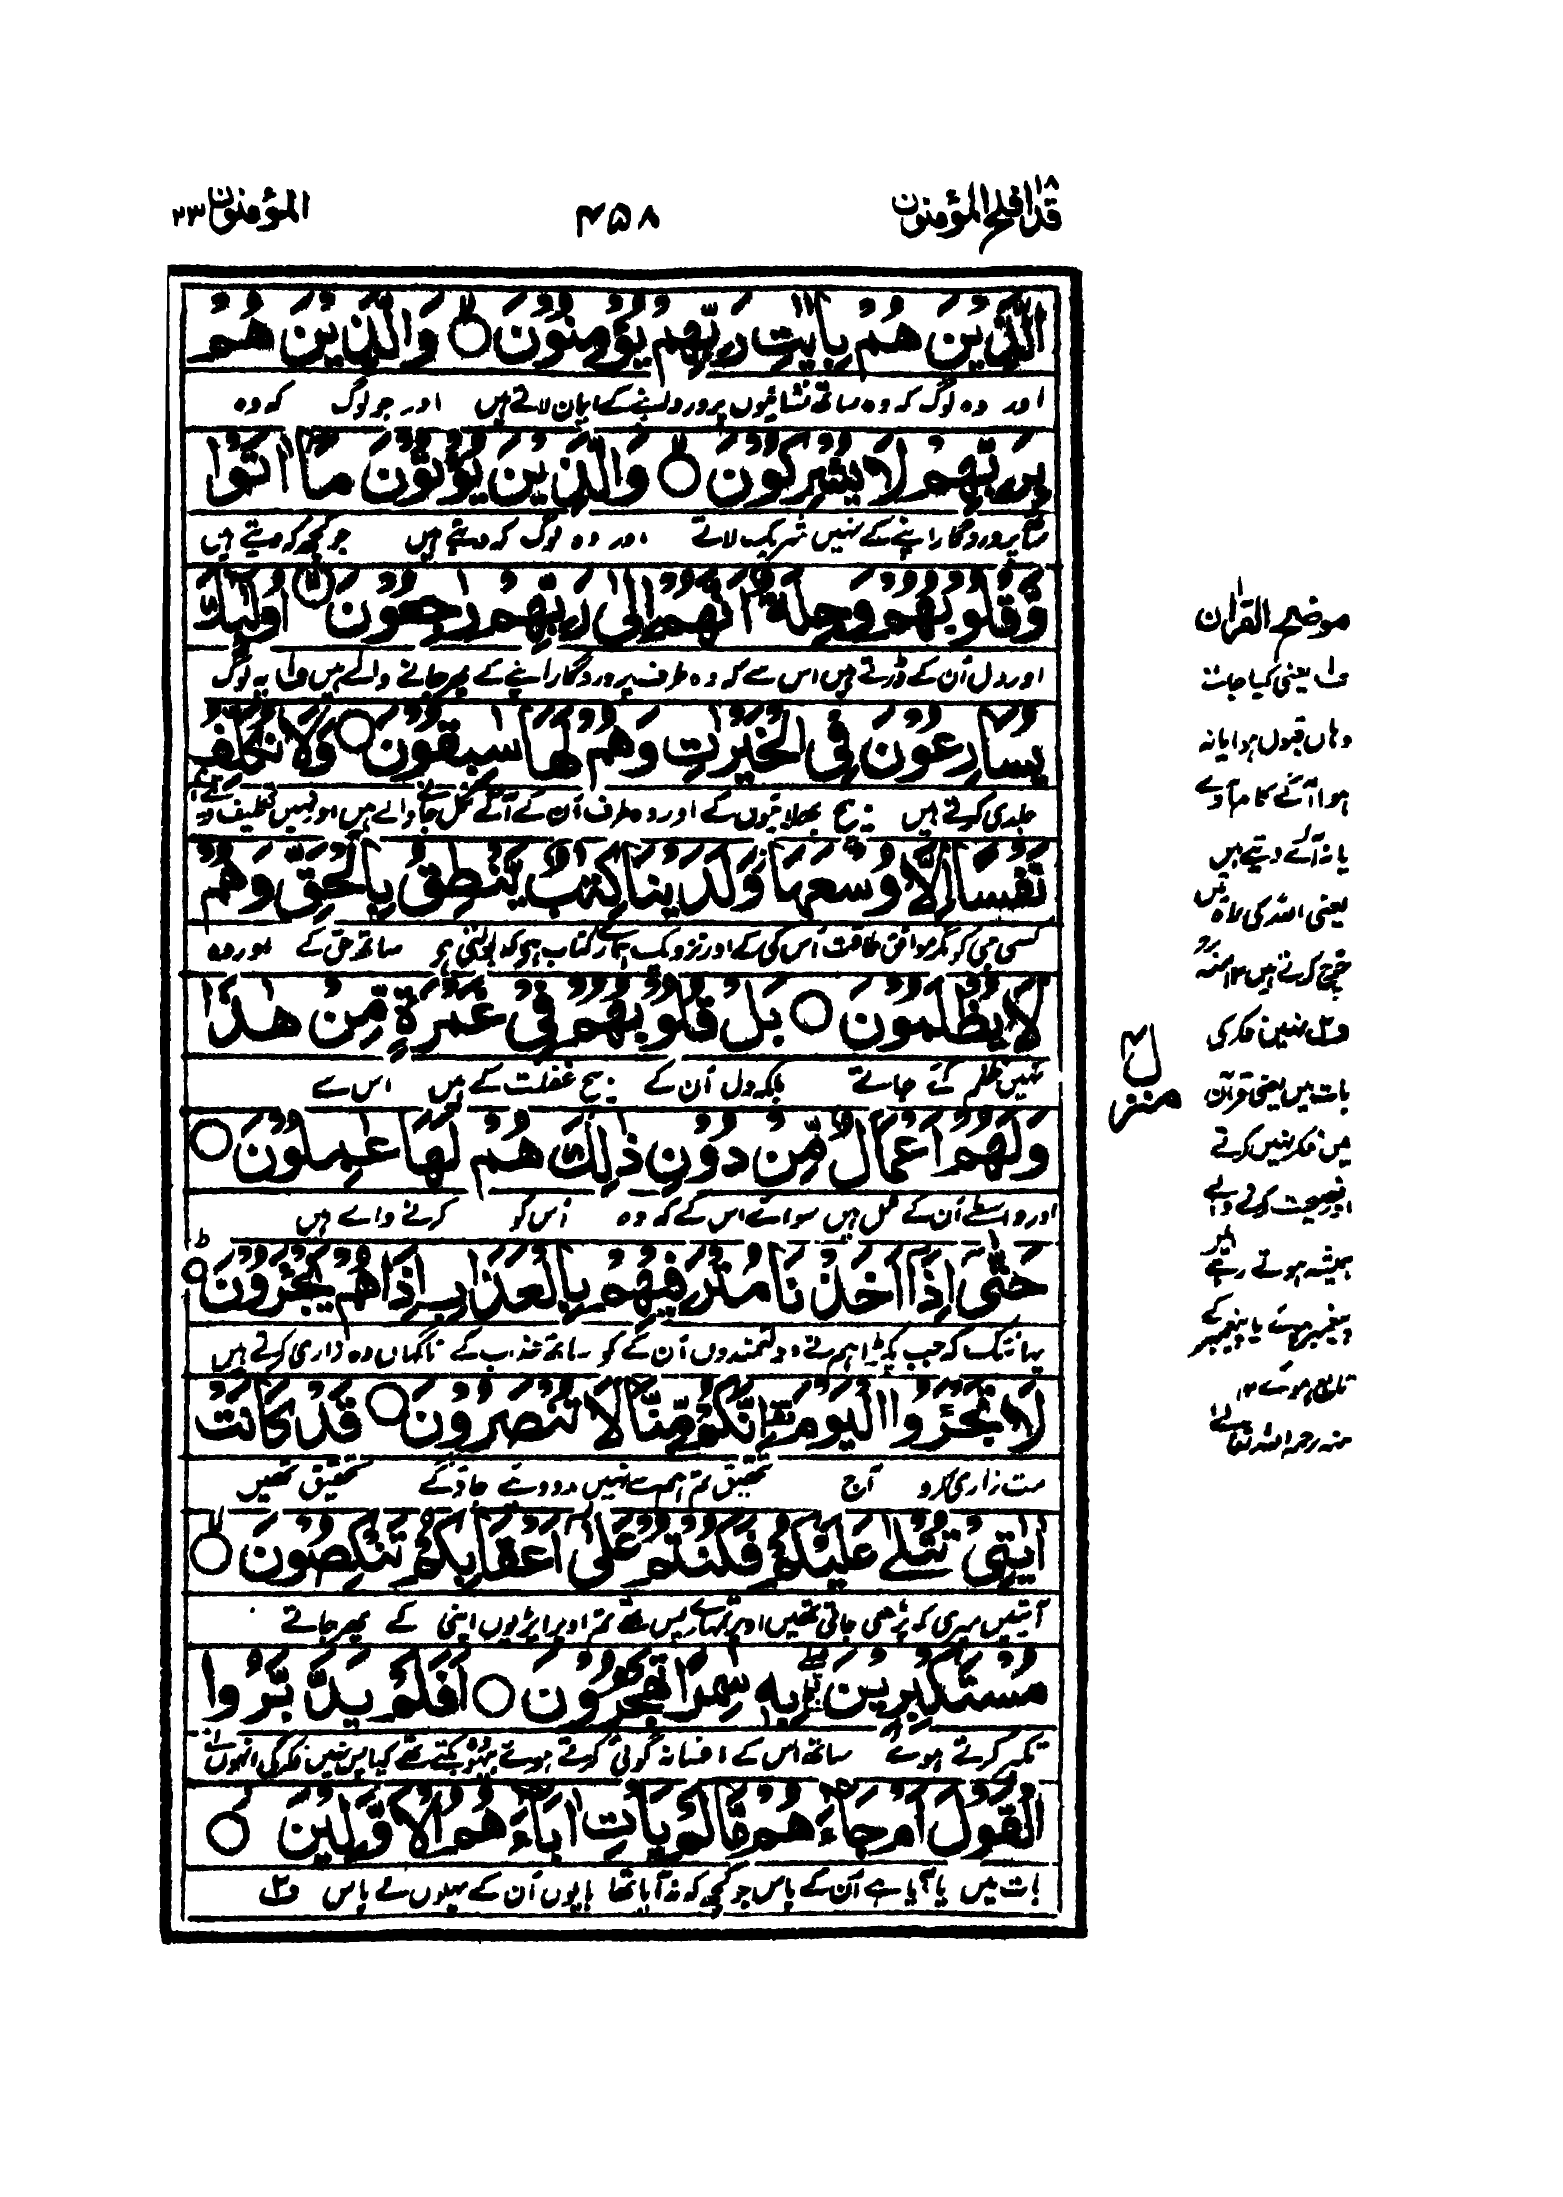 قد افلح المؤمنون ١٨
۴۵۸
المؤمنون ٢٣
الَّذِيْنَ هُمْ بِاٰيٰتِ رَبِّهِمْ يُؤْمِنُوْنَ ۙ وَالَّذِيْنَ هُمْ
اور وہ لوگ کہ وہ ساتھ نشانیوں پروردگار اپنے کے ایمان لاتے ہیں اور جو لوگ کہ وہ
بِرَبِّهِمْ لَا يُشْرِكُوْنَ ۙ وَالَّذِيْنَ يُؤْتُوْنَ مَآ اٰتَوْا
ساتھ پروردگار اپنے کے نہیں شریک لاتے اور وہ لوگ کہ دیتے ہیں جو کچھ کہ دیتے ہیں
وَّقُلُوْبُهُمْ وَجِلَةٌ اَنَّهُمْ اِلٰى رَبِّهِمْ رٰجِعُوْنَ ۙ اُولٰٓئِكَ
اور دل اُن کے ڈرتے ہیں اس سے کہ وہ طرف پروردگار اپنے کے پھر جانے والے ہیں ف۱ یہ لوگ
يُسَارِعُوْنَ فِى الْخَيْرٰتِ وَهُمْ لَهَا سٰبِقُوْنَ وَلَا نُكَلِّفُ
جلدی کرتے ہیں بیچ بھلائیوں کے اور وہ طرف اُن کے آگے نکل جانے والے ہیں اور نہیں تکلیف دیتے
نَفْسًا اِلَّا وُسْعَهَا وَلَدَيْنَا كِتٰبٌ يَّنْطِقُ بِالْحَقِّ وَهُمْ
کسی جی کو مگر موافق طاقت اُس کی کے اور نزدیک ہمارے کتاب ہے کہ بولتی ہے ساتھ حق کے اور وہ
لَا يُظْلَمُوْنَ بَلْ قُلُوْبُهُمْ فِىْ غَمْرَةٍ مِّنْ هٰذَا
نہیں ظلم کئے جاتے بلکہ دل اُن کے بیچ غفلت کے ہیں اس سے
وَلَهُمْ اَعْمَالٌ مِّنْ دُوْنِ ذٰلِكَ هُمْ لَهَا عٰمِلُوْنَ
اور واسطے اُن کے عمل ہیں سوائے اس کے کہ وہ اُس کو کرنے والے ہیں
حَتّٰٓى اِذَآ اَخَذْنَا مُتْرَفِيْهِمْ بِالْعَذَابِ اِذَا هُمْ يَجْـَٔرُوْنَ ؕ
یہانتک کہ جب پکڑا ہم نے دولتمندوں اُن کے کو ساتھ عذاب کے ناگہاں وہ زاری کرتے ہیں
لَا تَجْـَٔرُوا الْيَوْمَ اِنَّكُمْ مِّنَّا لَا تُنْصَرُوْنَ قَدْ كَانَتْ
مت زاری کرو آج تحقیق تم ہم سے نہیں مدد دئیے جاؤ گے تحقیق تھیں
اٰيٰتِىْ تُتْلٰى عَلَيْكُمْ فَكُنْتُمْ عَلٰٓى اَعْقَابِكُمْ تَنْكِصُوْنَ ۙ
آیتیں میری کہ پڑھی جاتی تھیں اوپر تمہارے پس تھے تم اوپر ایڑیوں اپنی کے پھر جاتے
مُسْتَكْبِرِيْنَ بِهٖ سٰمِرًا تَهْجُرُوْنَ اَفَلَمْ يَدَّبَّرُوا
تکبر کرتے ہوئے ساتھ اس کے افسانہ گوئی کرتے ہوئے بیہودہ بکتے تھے کیا پس نہیں فکر کی انہوں نے
الْقَوْلَ اَمْ جَآءَهُمْ مَّا لَمْ يَاْتِ اٰبَآءَهُمُ الْاَوَّلِيْنَ
بات میں یا آیا ہے اُن کے پاس جو کچھ کہ نہ آیا تھا باپوں اُن کے پہلوں کے پاس ف۲
منزل ۴
موضح القراٰن
ف۱ یعنی کیا جانے
وہاں قبول ہوا یا نہ
ہوا آگے کام آوے
یا نہ آگے دیتے ہیں
یعنی اللہ کی راہ میں
خرچ کرتے ہیں ۱۲ منہ
ف۲ نہیں فکر کی
بات میں یعنی قرآن
میں فکر نہیں کرتے
اور نصیحت کرنے والے
ہمیشہ ہوتے رہے ہیں
پیغمبر ہوئے یا پیغمبر کے
تابع ہوئے ۱۲
منہ رحمہ اللہ تعالےٰ